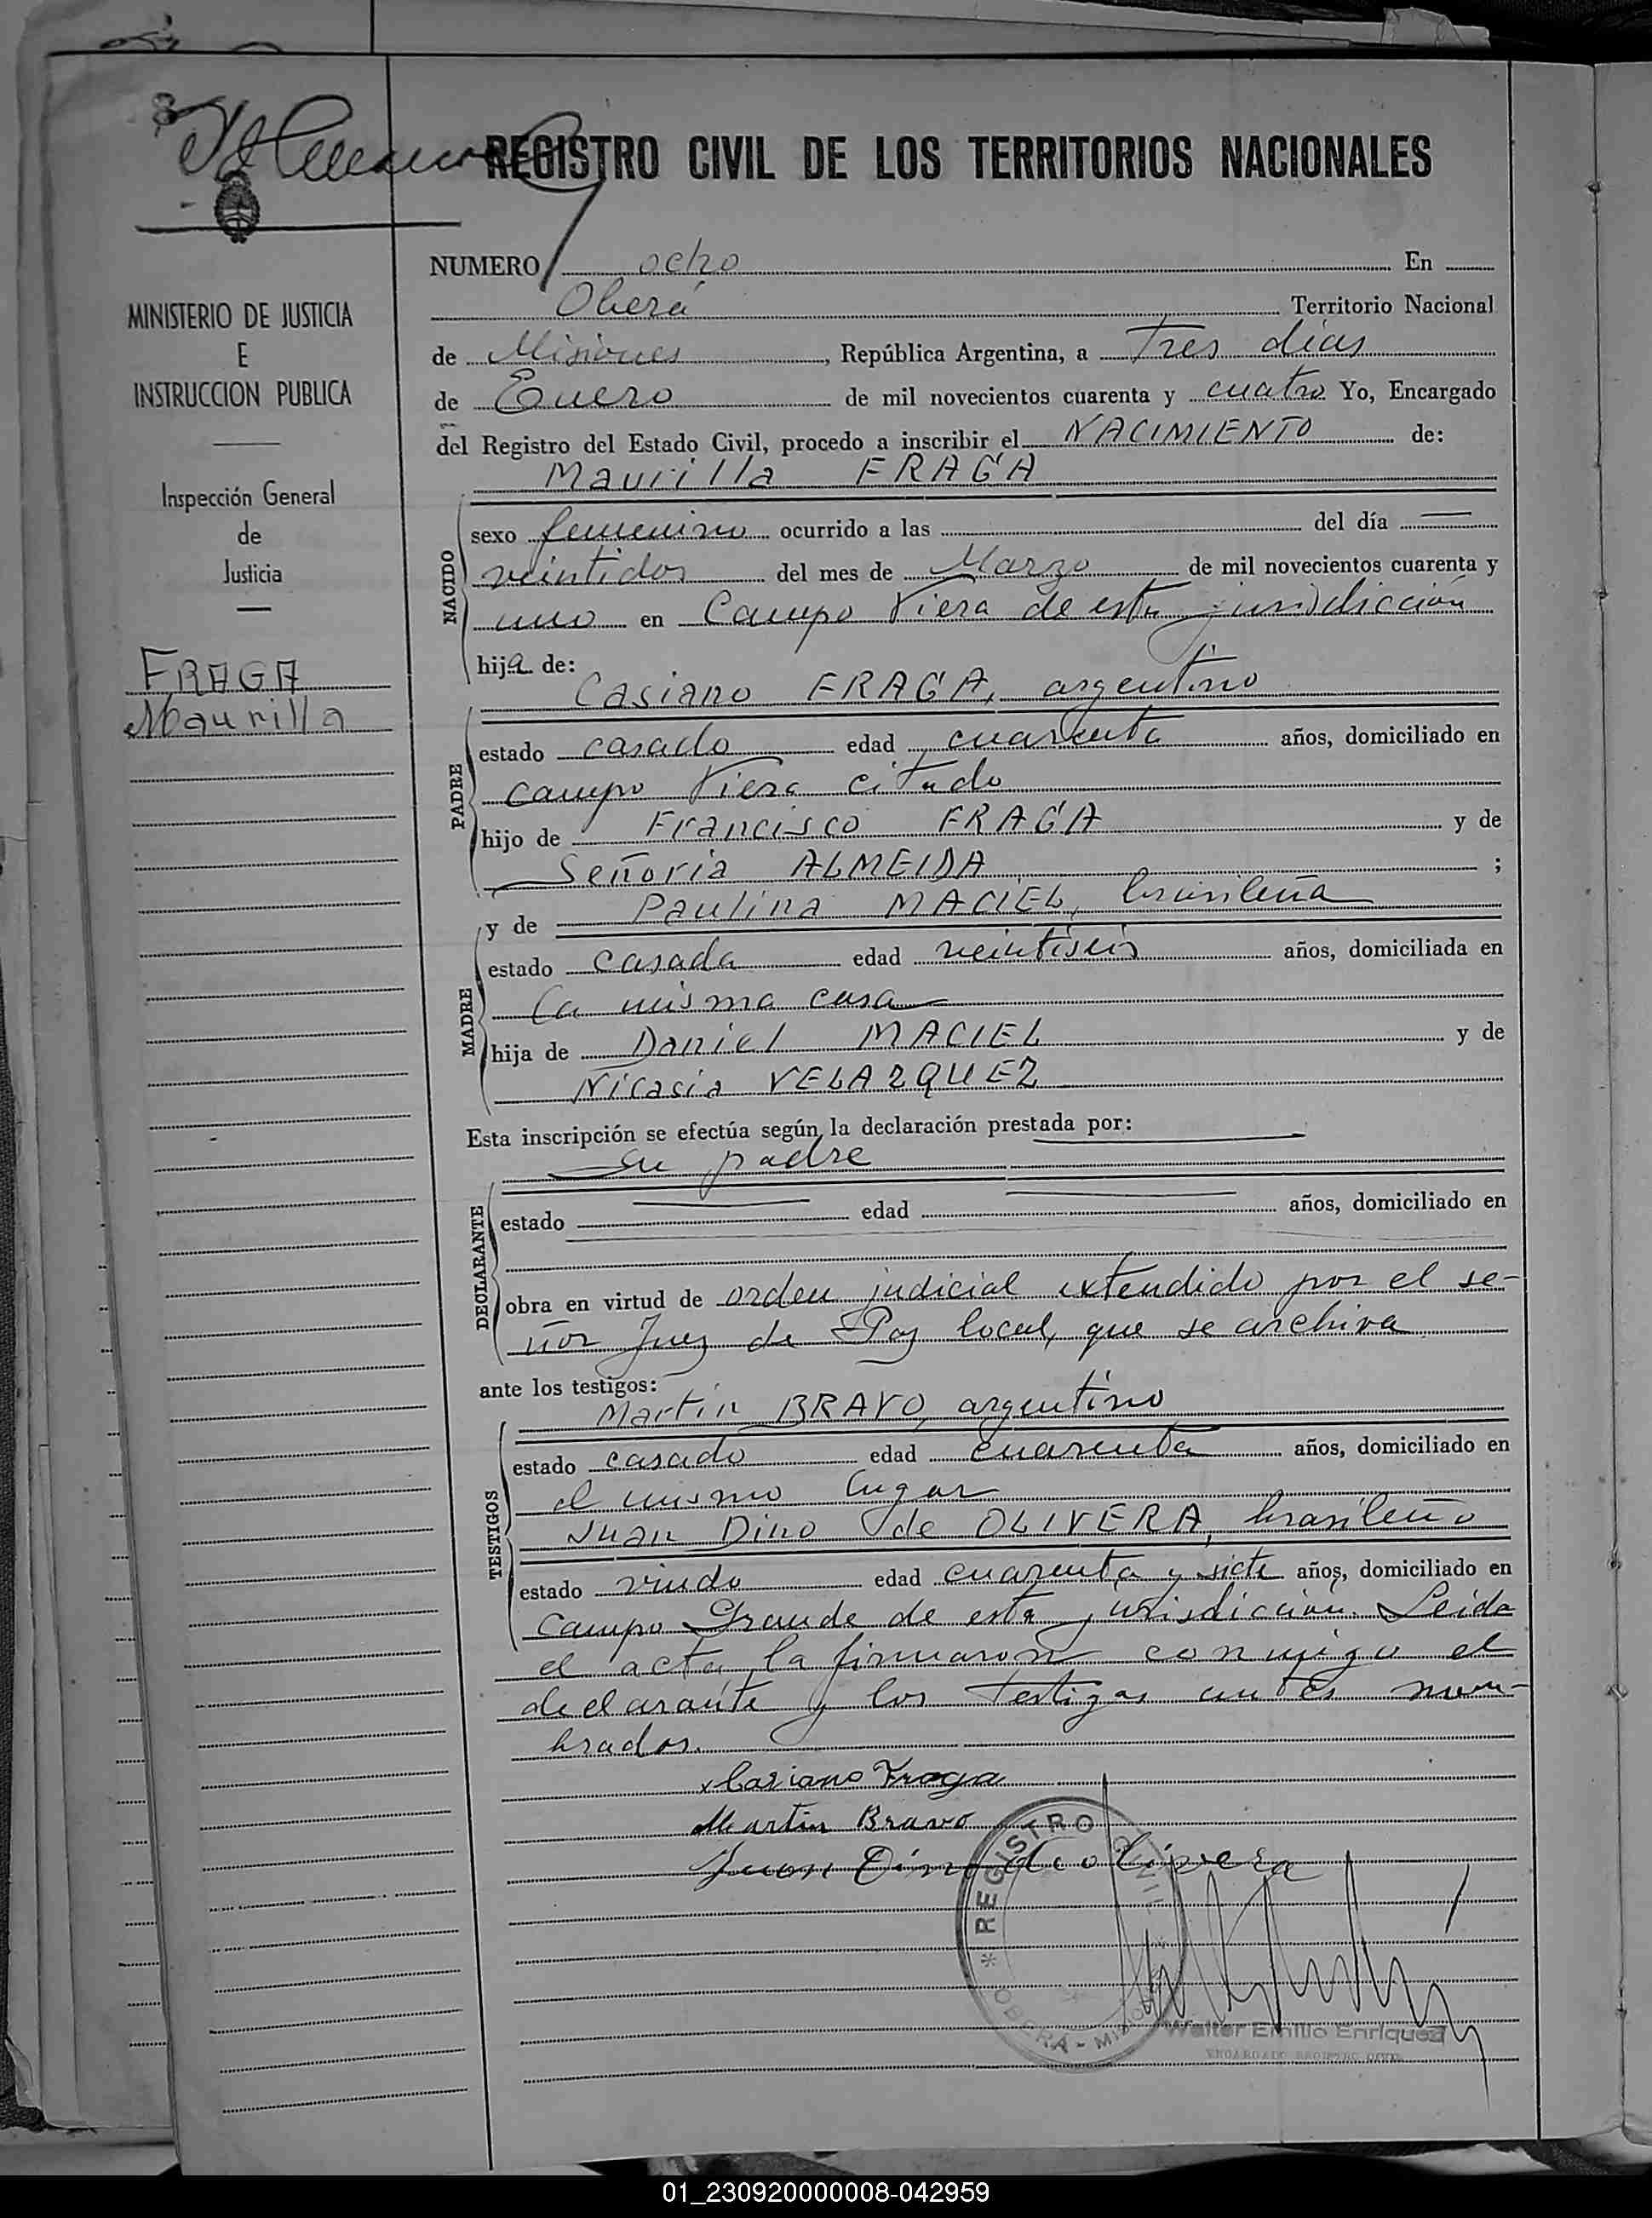 REGISTRO CIVIL DE LOS TERRITORIOS NACIONALES
MINISTERIO DE JUSTICIA
E
INSTRUCCION PUBLICA
Inspección General
de
Justicia
FRAGA
Maurilla
NUMERO ocho En
Oberá Territorio Nacional
de Misiones, República Argentina, a Tres días
de Enero de mil novecientos cuarenta y cuatro Yo, Encargado
del Registro del Estado Civil, procedo a inscribir el NACIMIENTO de:
Maurilla FRAGA
NACIDO
sexo femenino ocurrido a las del día
veintidos del mes de Marzo de mil novecientos cuarenta y
uno en Campo Viera de esta jurisdicción
hija de:
Casiano FRAGA, argentino
PADRE
estado casado edad cuarenta años, domiciliado en
campo Viera citado
hijo de Francisco FRAGA y de
Señoria ALMEIDA ;
y de Paulina MACIEL, brasileña
MADRE
estado casada edad veintiseis años, domiciliada en
la misma casa
hija de Daniel MACIEL y de
Nicasia VELAZQUEZ
Esta inscripción se efectúa según la declaración prestada por:
su padre
DECLARANTE
estado edad años, domiciliado en
obra en virtud de orden judicial extendido por el se-
ñor Juez de Paz local, que se archiva
ante los testigos:
Martín BRAVO, argentino
TESTIGOS
estado casado edad cuarenta años, domiciliado en
el mismo lugar
Juan Dino de OLIVERA, brasileño
estado viudo edad cuarenta y siete años, domiciliado en
campo Grande de esta jurisdicción. Leida
el acta, la firmaron conmigo el
declarante y los testigos antes nom-
brados.
x Casiano Fraga
Martin Bravo
Juan Dino de olivera
REGISTRO CIVIL
OBERÁ - MISIONES
Walter Emilio Enriquez
ENCARGADO REGISTRO CIVIL
01_230920000008-042959